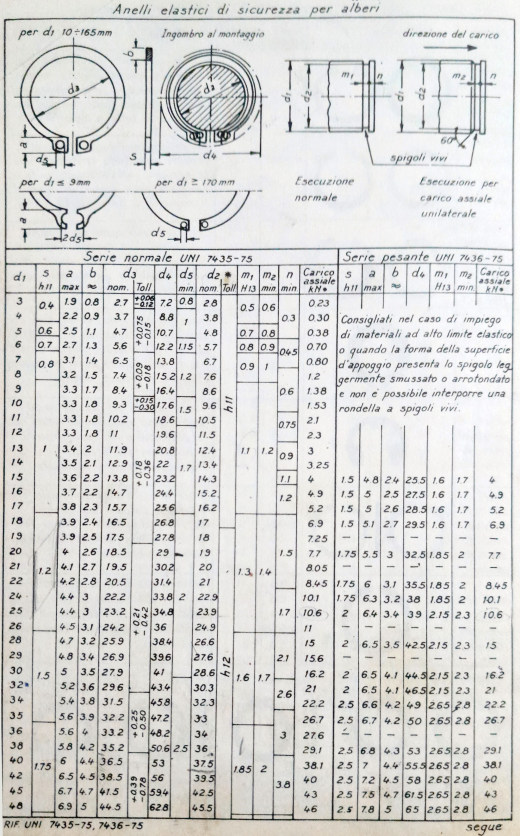 Anelli elastici di sicurezza per alberi
per d1 10÷165mm
Ingombro al montaggio
direzione del carico
b
d3
d3
d1
d2
m1
n
d1
d2
m2
n
a
d5
s
d4
60°
spigoli vivi
per d1 ≤ 9mm
per d1 ≥ 170mm
Esecuzione normale
Esecuzione per carico assiale unilaterale
a
2d5
d5
Serie normale UNI 7435-75 Serie pesante UNI 7436-75
d1 s a b d3 d4 d5 d2 m1 m2 n Carico assiale kN* s a b d4 m1 m2 Carico assiale kN*
h11 max ∞ nom. Toll min nom. Toll H13 min. min h11 max ∞ H13 min.
3 0.4 1.9 0.8 2.7 +0.06 -0.12 7.2 0.8 2.8 h11 0.5 0.6 0.3 0.23
4 2.2 0.9 3.7 +0.075 -0.15 8.8 1 3.8 0.30
5 0.6 2.5 1.1 4.7 10.7 4.8 0.7 0.8 0.38
6 0.7 2.7 1.3 5.6 12.2 1.15 5.7 0.8 0.9 0.45 0.70
7 0.8 3.1 1.4 6.5 +0.09 -0.18 13.8 6.7 0.9 1 0.80
8 3.2 1.5 7.4 15.2 1.2 7.6 1.2
9 1 3.3 1.7 8.4 16.4 8.6 1.1 1.2 0.6 1.38
10 3.3 1.8 9.3 +0.15 -0.30 17.6 1.5 9.6 1.53
11 3.3 1.8 10.2 +0.18 -0.36 18.6 10.5 0.75 2.1
12 3.3 1.8 11 19.6 11.5 2.3
13 3.4 2 11.9 20.8 1.7 12.4 0.9 3
14 3.5 2.1 12.9 22 13.4 3.25
15 3.6 2.2 13.8 23.2 14.3 1.1 4 1.5 4.8 2.4 25.5 1.6 1.7 4
16 3.7 2.2 14.7 24.4 15.2 1.2 4.9 1.5 5 2.5 27.5 1.6 1.7 4.9
17 3.8 2.3 15.7 25.6 16.2 5.2 1.5 5 2.6 28.5 1.6 1.7 5.2
18 1.2 3.9 2.4 16.5 26.8 2 17 h12 1.3 1.4 1.5 6.9 1.5 5.1 2.7 29.5 1.6 1.7 6.9
19 3.9 2.5 17.5 27.8 18 7.25 – – – – – – –
20 4 2.6 18.5 29 19 7.7 1.75 5.5 3 32.5 1.85 2 7.7
21 4.1 2.7 19.5 30.2 20 8.05 – – – – – – –
22 4.2 2.8 20.5 31.4 21 8.45 1.75 6 3.1 35.5 1.85 2 8.45
24 4.4 3 22.2 +0.21 -0.42 33.8 22.9 1.7 10.1 1.75 6.3 3.2 38 1.85 2 10.1
25 4.4 3 23.2 34.8 23.9 10.6 2 6.4 3.4 39 2.15 2.3 10.6
26 4.5 3.1 24.2 36 24.9 11 – – – – – – –
28 1.5 4.7 3.2 25.9 38.4 26.6 1.6 1.7 2.1 15 2 6.5 3.5 42.5 2.15 2.3 15
29 4.8 3.4 26.9 39.6 27.6 15.6 – – – – – – –
30 5 3.5 27.9 41 28.6 16.2 2 6.5 4.1 44.5 2.15 2.3 16.2
32* 5.2 3.6 29.6 +0.25 -0.50 43.4 2.5 30.3 2.6 21 2 6.5 4.1 46.5 2.15 2.3 21
34 5.4 3.8 31.5 45.8 32.3 22.2 2.5 6.6 4.2 49 2.65 2.8 22.2
35 5.6 3.9 32.2 47.2 33 3 26.7 2.5 6.7 4.2 50 2.65 2.8 26.7
36 1.75 5.6 4 33.2 48.2 34 1.85 2 27.6 – – – – – – –
38 5.8 4.2 35.2 50.6 36 29.1 2.5 6.8 4.3 53 2.65 2.8 29.1
40 6 4.4 36.5 +0.39 -0.78 53 37.5 3.8 38.1 2.5 7 4.4 55.5 2.65 2.8 38.1
42 6.5 4.5 38.5 56 39.5 40 2.5 7.2 4.5 58 2.65 2.8 40
45 6.7 4.7 41.5 59.4 42.5 43 2.5 7.5 4.7 61.5 2.65 2.8 43
48 6.9 5 44.5 62.8 45.5 46 2.5 7.8 5 65 2.65 2.8 46
Consigliati nel caso di impiego
di materiali ad alto limite elastico
o quando la forma della superficie
d'appoggio presenta lo spigolo leg
germente smussato o arrotondato
e non e' possibile interporre una
rondella a spigoli vivi.
RIF. UNI 7435-75, 7436-75
segue